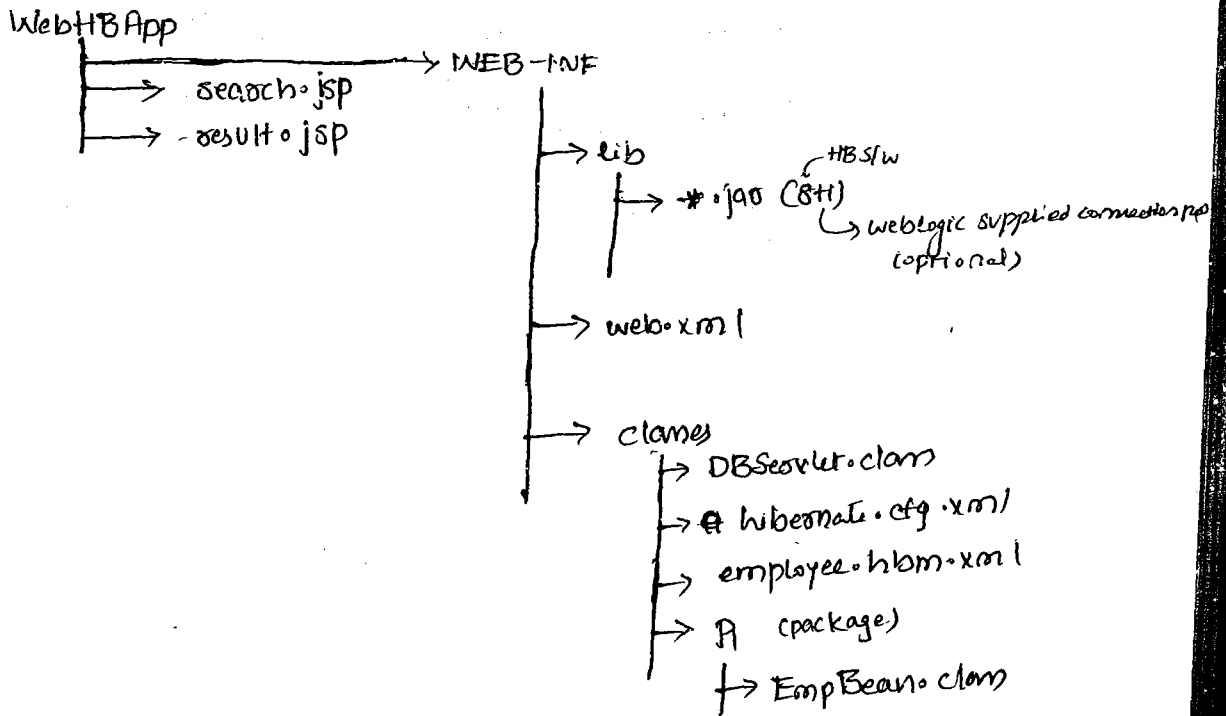 WebHBApp
WEB-INF
search.jsp
result.jsp
lib
HB S/w
*.jar (8+1)
weblogic supplied connection
(optional)
web.xml
classes
DBServlet.class
hibernate.cfg.xml
employee.hbm.xml
(package)
EmpBean.class